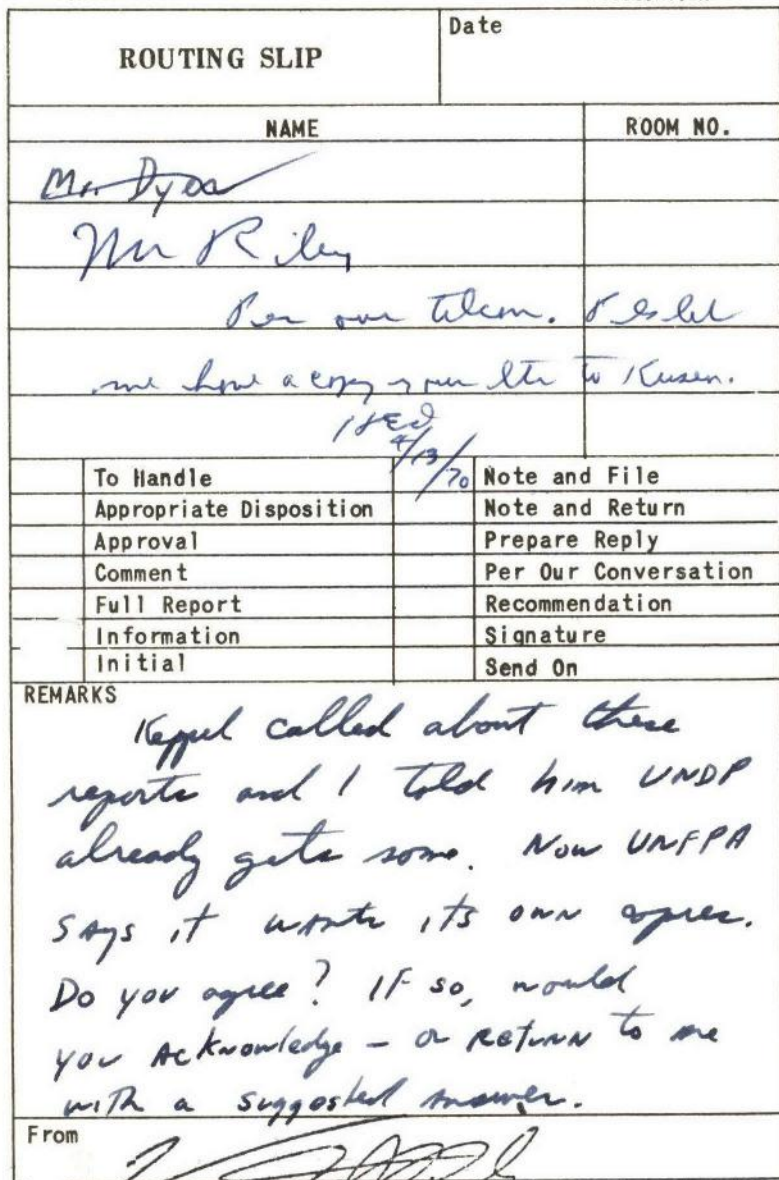 ROUTING SLIP
Date
NAME
ROOM NO.
Mr. Dyck
Mr Riley
Per our telcon. Pls let
me have a copy your ltr to
4/13/70
To Handle
Note and File
Appropriate Disposition
Note and Return
Approval
Prepare Reply
Comment
Per Our Conversation
Full Report
Recommendation
Information
Signature
Initial
Send On
REMARKS
Keppel called about these
reports and I told him UNDP
already gets some. Now UNFPA
says it wants its own copies.
Do you agree? If so, would
you acknowledge - or return to me
with a suggested answer.
From